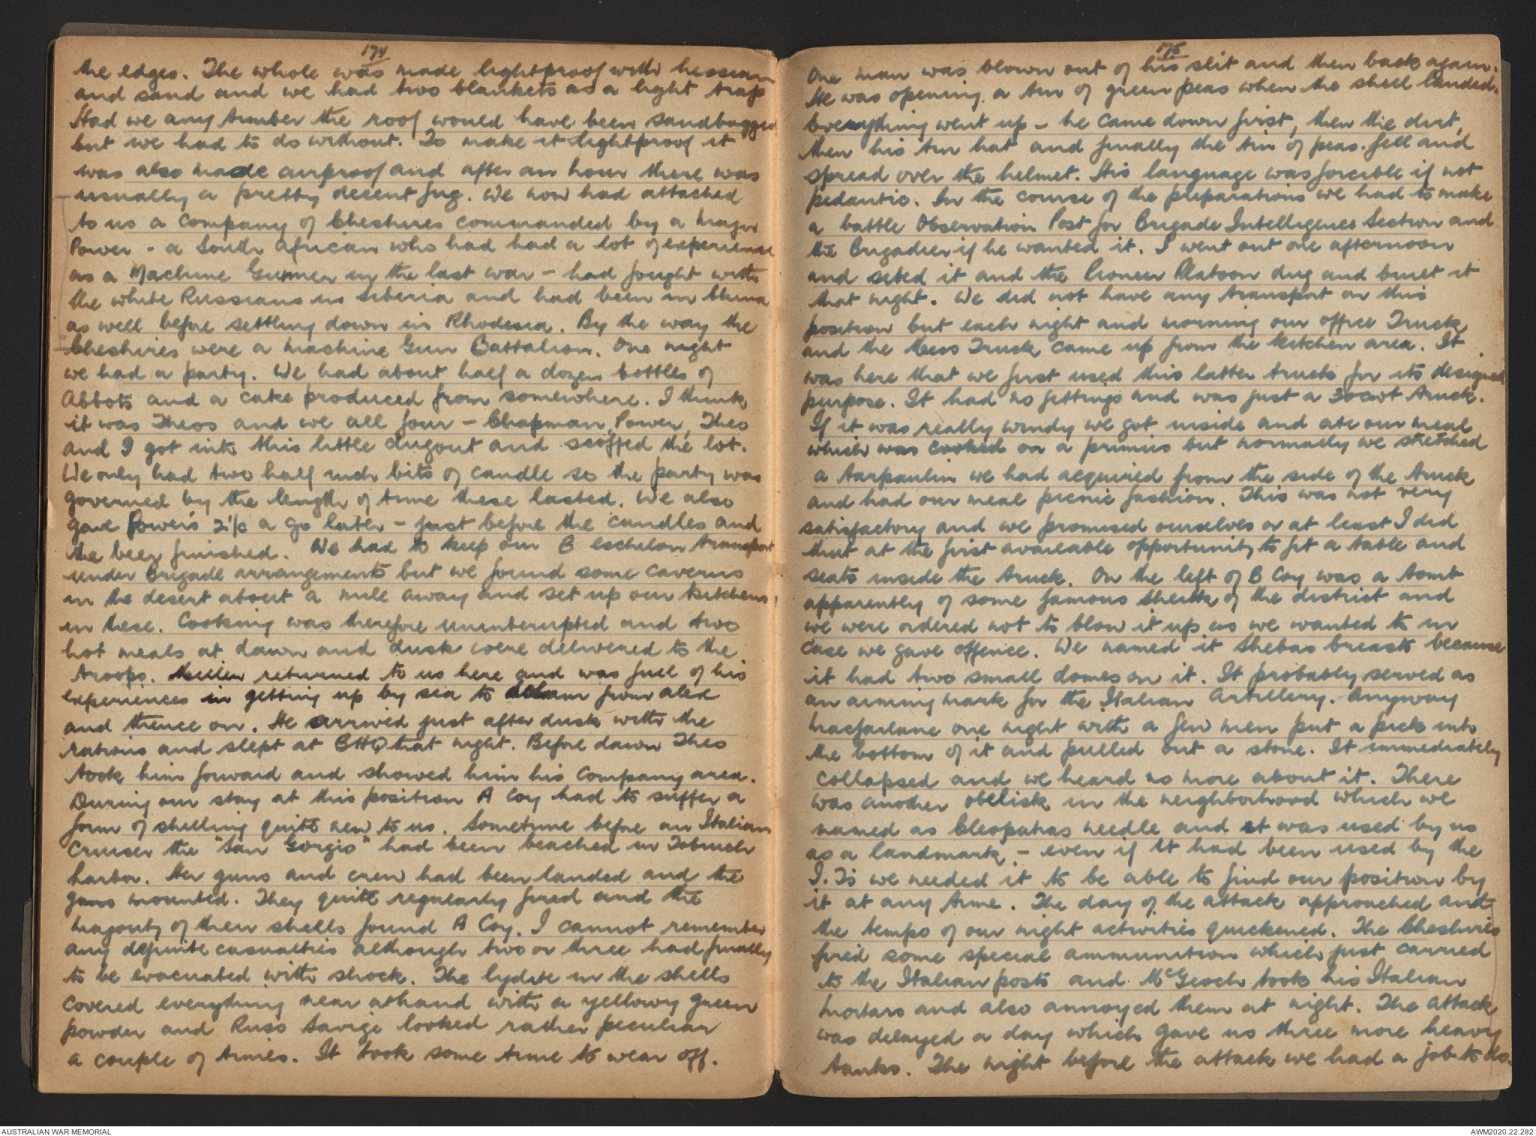 174
the edges. The whole was made lightproof with hessian
and sand and we had two blankets as a light trap
Had we any timber the roof would have been sandbagged
but we had to do without. To make it lightproof it
was also made airproof and after an hour there was
usually a pretty decent fug. We now had attached
to us a company of Cheshires commanded by a Major
Power - a South African who had had a lot of experience
as a Machine Gunner in the last war - had fought with
the white Russians in Siberia and had been in China
as well before settling down in Rhodesia. By the way the
Cheshires were a Machine Gun Battalion. One night
we had a party. We had about half a dozen bottles of
Abbots and a cake produced from somewhere. I think
it was Theos and we all four - Chapman, Power, Theo
and I got into this little dugout and scoffed the lot.
We only had two half inch bits of candle so the party was
governed by the length of time these lasted. We also
gave Powers 2i/c a go later - just before the candles and
the beer finished. We had to keep our B eschelon transport
under Brigade arrangements but we found some caverns
in the desert about a mile away and set up our kitchens
in these. Cooking was therefore uninterrupted and two
hot meals at dawn and dusk were delivered to the
troops. returned to us here and was full of his
experiences in getting up by sea to from Alex
and thence on. He arrived just after dusk with the
rations and slept at BHQ that night. Before dawn Theo
took him forward and showed him his Company area.
During our stay at this position A Coy had to suffer a
form of shelling quite new to us. Sometime before an Italian
Cruiser the "San Gorgio" had been beached in Tobruch
harbor. Her guns and crew had been landed and the
guns mounted. They quite regularly fired and the
majority of their shells found A Coy. I cannot remember
any definite casualties although two or three had finally
to be evacuated with shock. The lydite in the shells
covered everything near at hand with a yellowy green
powder and Russ Savige looked rather peculiar
a couple of times. It took some time to wear off.
175
One man was blown out of his slit and then back again.
He was opening a tin of green peas when the shell landed.
Everything went up - he came down first, then the dirt,
then his tin hat and finally the tin of peas fell and
spread over the helmet. His language was forcible if not
pedantic. In the course of the preparations we had to make
a battle Observation Post for Brigade Intelligence Section and
the Brigadier if he wanted it. I went out one afternoon
and sited it and the Pioneer Platoon dug and built it
that night. We did not have any transport on this
position but each night and morning our office Truck
and the Mess Truck came up from the kitchen area. It
was here that we first used this latter truck for its designed
purpose. It had no fittings and was just a 30cwt truck.
If it was really windy we got inside and ate our meal
which was cooked on a primus but normally we stretched
a tarpaulin we had acquired from the side of the truck
and had our meal picnic fashion. This was not very
satisfactory and we promised ourselves or at least I did
that at the first available opportunity to fit a table and
seats inside the truck. On the left of B Coy was a tomb
apparently of some famous Sheikh of the district and
we were ordered not to blow it up as we wanted to in
case we gave offence. We named it Shebas breasts because
it had two small domes on it. It probably served as
an aiming mark for the Italian Artillery. Anyway
Macfarlane one night with a few men put a pick into
the bottom of it and pulled out a stone. It immediately
collapsed and we heard no more about it. There
was another obelisk in the neighborhood which we
named as Cleopatras needle and it was used by us
as a landmark - even if it had been used by the
I.Ts we needed it to be able to find our position by
it at any time. The day of the attack approached and
the tempo of our night activities quickened. The Cheshires
fired some special ammunition which just carried
to the Italian posts and McGeoch took his Italian
mortars and also annoyed them at night. The attack
was delayed a day which gave us three more heavy
tanks. The night before the attack we had a job to do
AUSTRALIAN WAR MEMORIAL
AWM2020.22.282